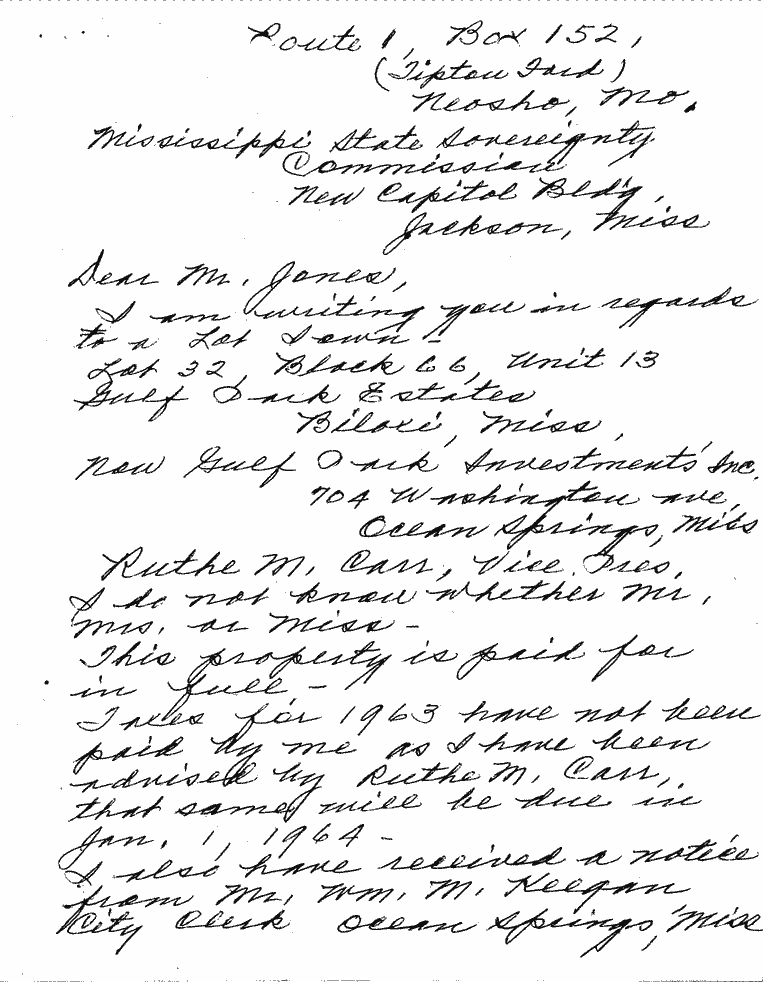 Route 1, Box 152,
(Tipton Ford)
Neosho, Mo.
Mississippi State Sovereignty
Commission
New Capitol Bldg,
Jackson, Miss
Dear Mr. Jones,
I am writing you in regards
to a Lot I own -
Lot 32, Block 66, Unit 13
Gulf Park Estates
Biloxi, Miss,
Now Gulf Park Investments Inc.
704 Washington ave,
Ocean Springs, Miss
Ruthe M. Carr, Vice Pres,
I do not know whether Mr,
Mrs. or Miss -
This property is paid for
in full -
Taxes for 1963 have not been
paid by me as I have been
advised by Ruthe M. Carr,
that same will be due in
Jan. 1, 1964 -
I also have received a notice
from Mr. Wm. M. Keegan
City Clerk Ocean Springs, Miss